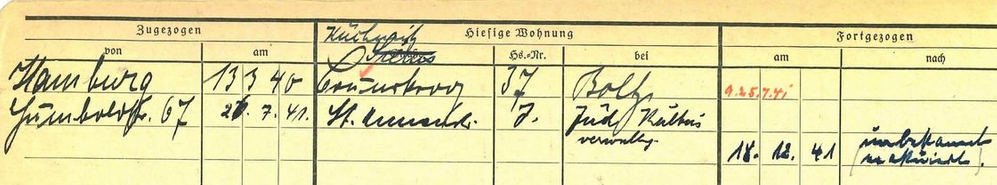 Zugezogen Hiesige Wohnung Fortgezogen
von am Hs.-Nr. bei am nach
Kücknitz
Hamburg 13 3 40 37 Boltz 9.25.7.41
Humboldtstr. 67 26. 7. 41. St. Annenstr. 7. Jüd Kultus
verwaltg.
18. 12. 41 unbekannt
evakuiert.